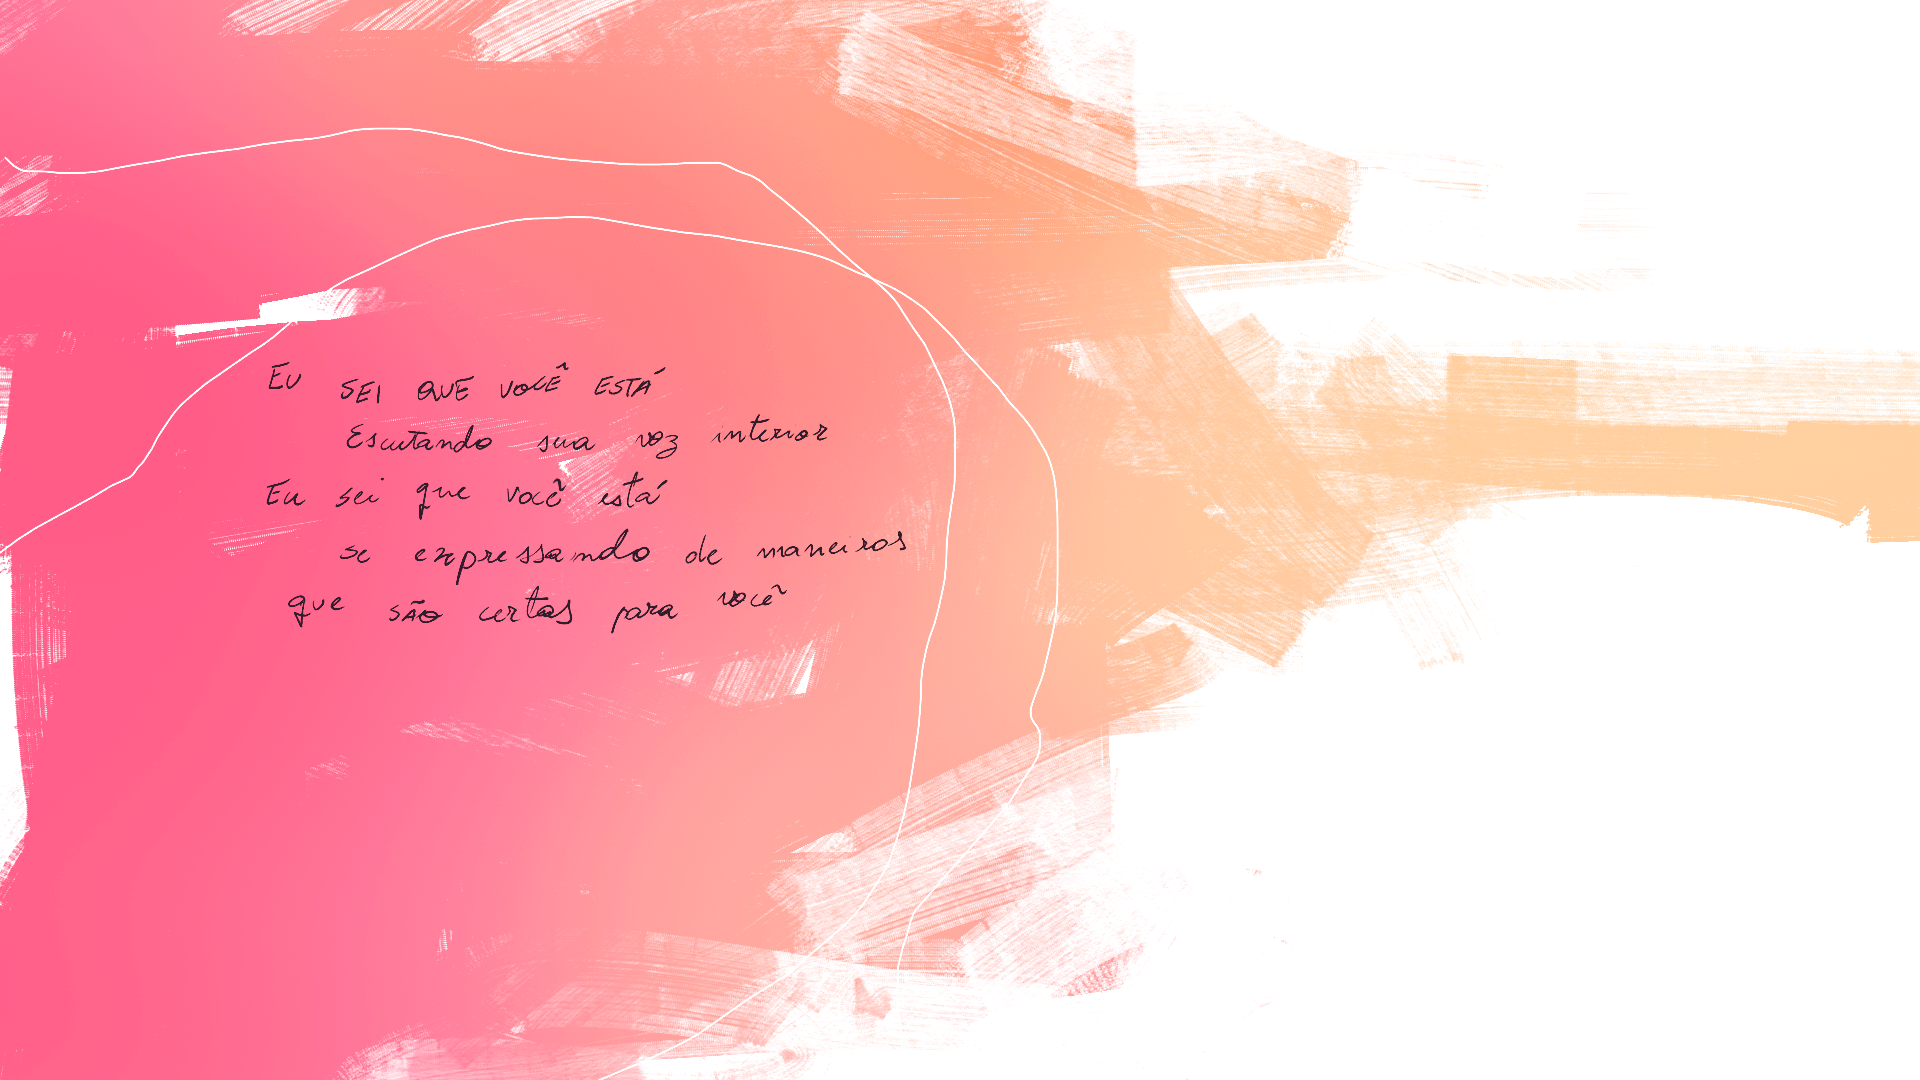 EU SEI QUE VOCÊ ESTÁ
Escutando sua voz interior
Eu sei que você está
se expressando de maneiras
que são certas para você